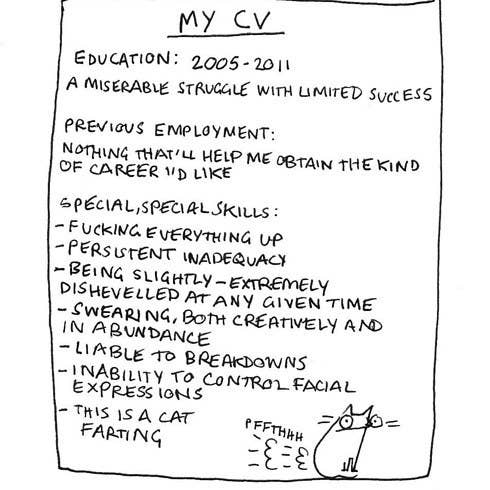 MY CV
EDUCATION: 2005-2011
A MISERABLE STRUGGLE WITH LIMITED SUCCESS
PREVIOUS EMPLOYMENT:
NOTHING THAT'LL HELP ME OBTAIN THE KIND
OF CAREER I'D LIKE
SPECIAL, SPECIAL SKILLS:
- FUCKING EVERYTHING UP
- PERSISTENT INADEQUACY
- BEING SLIGHTLY - EXTREMELY
DISHEVELLED AT ANY GIVEN TIME
- SWEARING, BOTH CREATIVELY AND
IN ABUNDANCE
- LIABLE TO BREAKDOWNS
- INABILITY TO CONTROL FACIAL
EXPRESSIONS
- THIS IS A CAT
FARTING
PFFTHHH